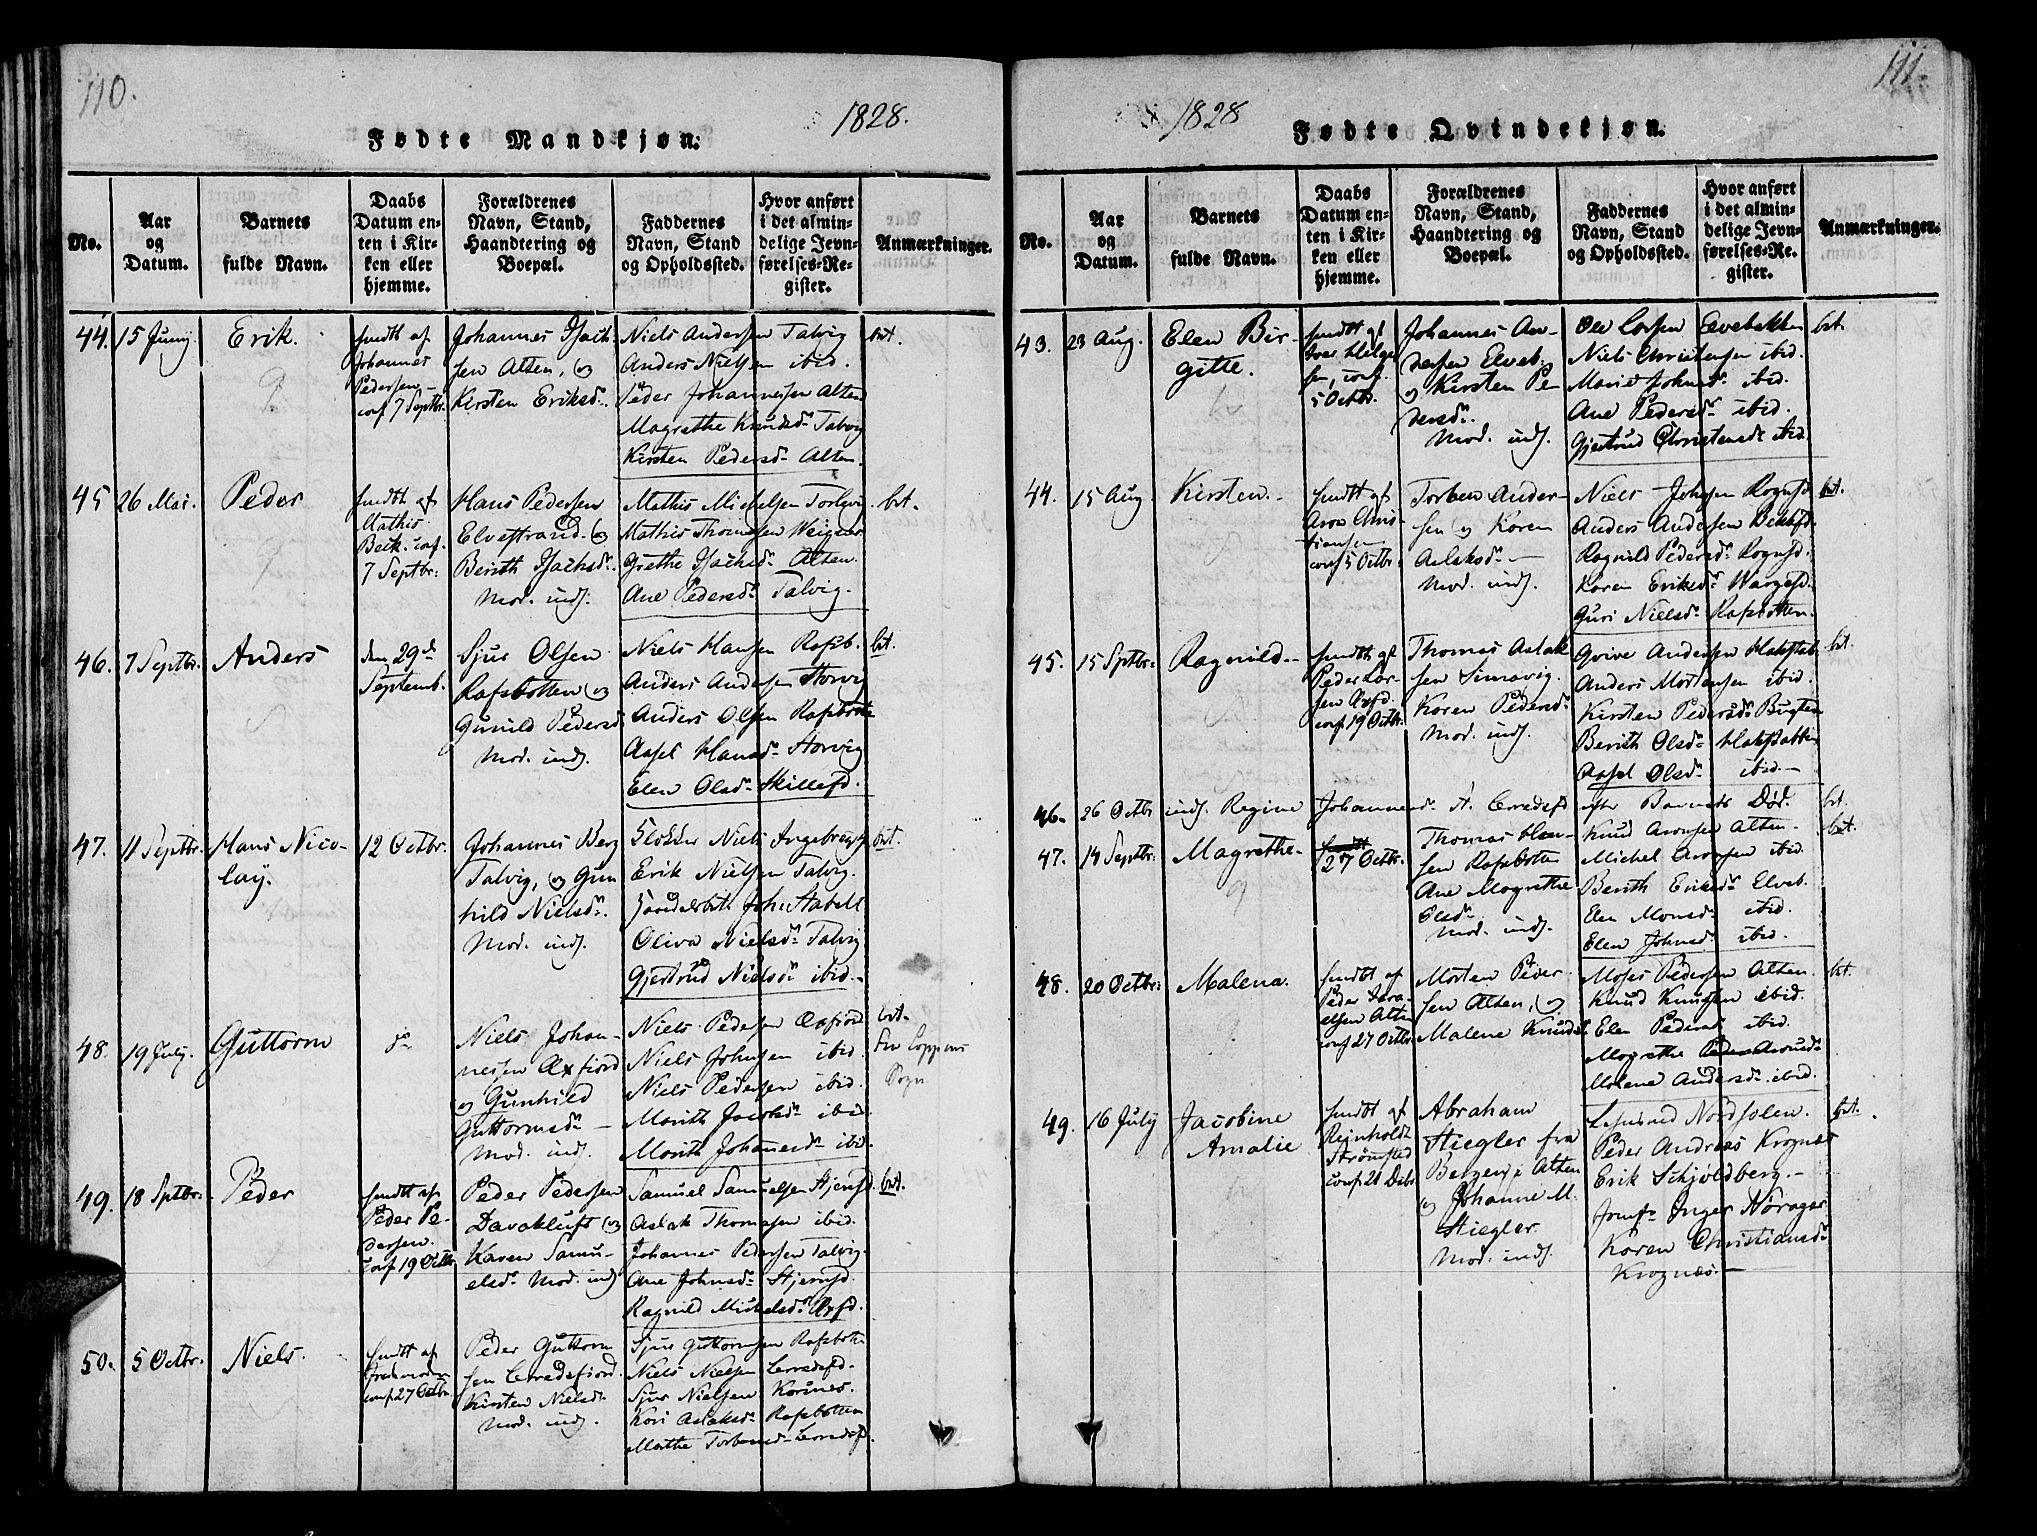 110.
1828.
Fødte Mandkjøn:
No.
Aar og Datum.
Barnets fulde Navn.
Daabs Datum enten i Kirken eller hjemme.
Forældrenes Navn, Stand, Haandtering og Boepæl.
Faddernes Navn, Stand og Opholdssted.
Hvor anført i det almindelige Jevnførelses-Register.
Anmærkninger.
44. 15 Juny Erik.
hmdt af
Johannes
Pedersen
conf 7 Septbr.
Johannes Isach
sen Alten, og
Kirsten Eriksd.
Niels Andersen Talvig
Anders Nielsen ibid.
Peder Johannesen Alten
Magrethe Knudsd. Talvig
Kirsten Pedersd. Alten.
bst.
45 26 Mai. Peder
hmdt af
Mathis
Beck. conf.
7 Septbr:
Hans Pedersen
Elvestrand og
Berith Isachsd.
Mod. indj.
Mathis Michelsen
Mathis Thomesen
Grethe Isachsd. Alten.
Ane Pedersd. Talvig.
bst.
46. 7 Septbr. Anders
den 29d
Septemb.
Sjur Olsen
Rafsbotten og
Gunild Pedersd
Mod. indj.
Niels Hansen Rafsb.
Anders Andersen Storvig
Anders Olsen Rafsbotten
Aasel Hansd. Storvig
Elen Olsd. Skillefd.
bst.
47. 11 Septbr. Hans Nico-
lay.
12 Octbr.
Johannes Berg
Talvig, og Gun
hild Nielsd.
Mod. indj.
Klokker Niels Ingebregtsen
Erik Nielsen Talvig.
John Stabell
Oliva Nielsd. Talvig
Gjertrud Nielsd. ibid.
bst.
48. 19 July. Guttorm
do
Niels Johan-
nesen Øxfiord
og Gunhild
Guttormsd.
Mod. indj.
Niels Pedersen Øxfiord
Niels Johnsen ibid.
Niels Pedersen ibid.
Marith Jacobsd. ibid
Marith Johannesd. ibid.
bst.
fra Loppens
Sogn
49. 18 Sptbr. Peder
hmdt af
Peder Pe-
dersen.
conf 19 Octbr
Peder Pedersen
Davakluft og
Karen Samu-
elsd. Mod. indj
Samuel Samuelsen Stjernfd.
Aslak Thomesen ibid.
Johannes Pedersen Talvig
Ane Johnsd. Stjernfd.
Ragnild Michelsd. Øxfd.
bst.
50. 5 Octbr. Niels.
hmdt af
conf 27 Octbr.
Peder Guttorm
sen Lerredsfiord.
Kirsten Nielsd.
Mod. indj.
Sjur Guttormsen Rafsbotten
Niels Nielsen Lerredsfd.
Sjur Nielsen Korsnes.
Kari Aslaksd. Rafsbotten
Marthe Torbensd. Lerredsfd.
111.
1828
Fødte Qvindekjøn.
No.
Aar og Datum.
Barnets fulde Navn.
Daabs Datum enten i Kirken eller hjemme.
Forældrenes Navn, Stand, Haandtering og Boepæl.
Faddernes Navn, Stand og Opholdssted.
Hvor anført i det almindelige Jevnførelses-Register.
Anmærkninger.
43. 23 Aug. Elen Bir-
gitte.
hmdt af
Iver Helge
sen, conf.
5 Octbr.
Johannes An-
dersen Elveb.
og Kirsten Pe
dersd.
Mod. indj.
Ole Larsen Elvebakken
Niels Christensen ibid.
Marie Johnsd. ibid.
Ane Pedersd. ibid.
Gjertrud Christensd. ibid.
bst.
44. 15 Aug. Kirsten.
hmdt af
Aron Chris-
tiansen
conf 5 Octbr.
Torben Ander-
sen og Karen
Aslaksd.
Mod. indj.
Niels Johnsen Rognsd.
Anders Andersen
Ragnild Pedersd. Rognsd.
Karen Eriksd. Wargsd.
Guri Nielsd. Rafsbotten.
bst.
45. 15 Sptbr: Ragnild
hmdt af
Peder Lar-
sen Øxfd.
conf 19 Octbr.
Thomas Aslak
sen Simavig.
Karen Pedersd.
Mod. indj.
Qvive Andersen Hakstab
Anders Mortensen ibid.
Kirsten Pedersd. Bugten
Berith Olsd. Hakstabben
Aasel Olsd. ibid.
bst.
46. 26 Octbr indj. Regine Johannesd. A. Lerredsfd efter Barnets Død. bst.
47. 14 Septbr: Magrethe.
27 Octbr.
Thomas Han-
sen Rafsbotten
Ane Magrethe
Olsd.
Mod. indj.
Knud Aronsen Alten.
Michel Aronsen ibid.
Berith Eriksd. Elveb.
Elen Monsd. ibid.
Elen Johnsd. ibid.
bst.
48. 20 Octbr: Malena.
hmdt af
Peder Isra-
elsen Alten
conf 27 Octbr.
Morten Peder
sen Alten, og
Malene Knudsd.
Moses Pedersen Alten.
Knud Knudsen ibid.
Elen Pedersd. ibid.
Magrethe Aronsd.
Malene Andersd. ibid.
bst.
49. 16 July Jacobine
Amalie
hmdt af
Reinholdt
Strømsted
conf 21 Decbr
Abraham
Stiegler fra
Bergen, i Alten
og Johanne M.
Stiegler
Mod. indj.
Nordfolen.
Peder Andreas Krognæs
Erik Schjoldberg.
Jomfr. Inger Norager
Karen Christiansd.
Krognæs.
bst.